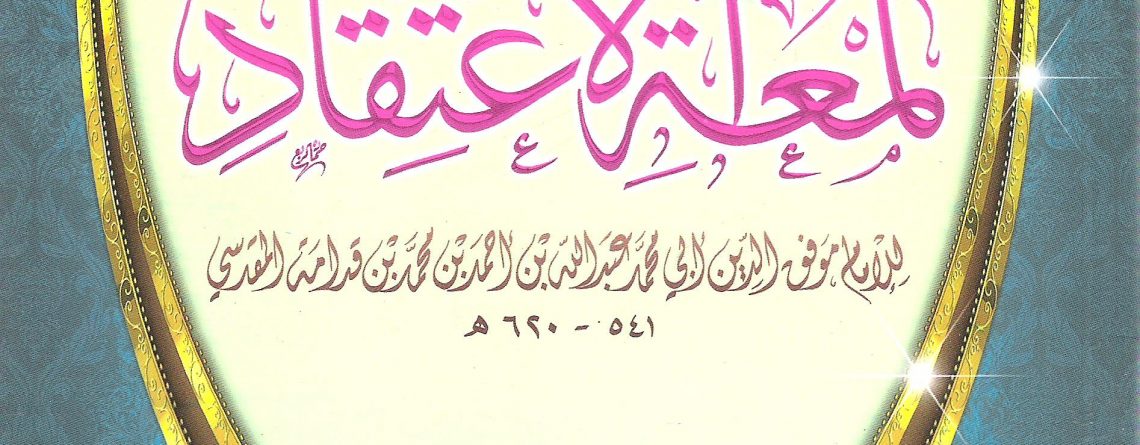 لمعة الاعتقاد
للإمام موفق الدين أبي محمد عبد الله بن أحمد بن محمد بن قدامة المقدسي
٥٤١ - ٦٢٠ هـ